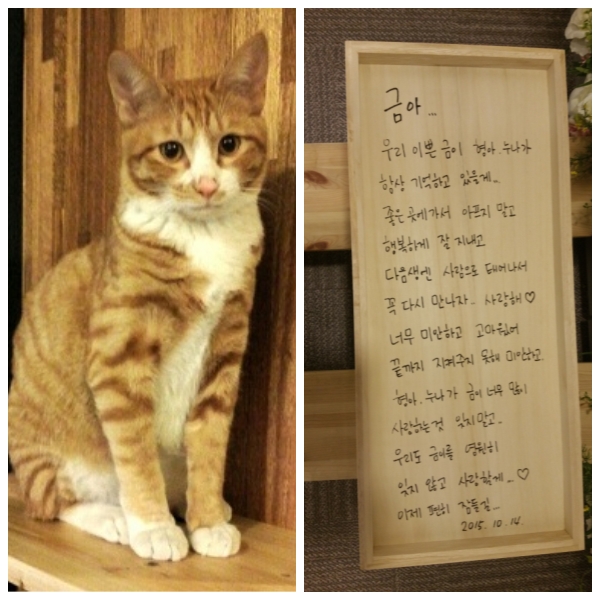 금아...
우리 이쁜 금이 형아.누나가
항상 기억하고 있을게..
좋은곳에가서 아프지 말고
행복하게 잘 지내고
다음생엔 사람으로 태어나서
꼭 다시 만나자.. 사랑해♡
너무 미안하고 고마웠어
끝까지 지켜주지 못해 미안하고.
형아.누나가 금이 너무 많이
사랑하는것 잊지말고.
우리도 금이를 영원히
잊지 않고 사랑할게...♡
이제 편히 잠들길...
2015.10.14.